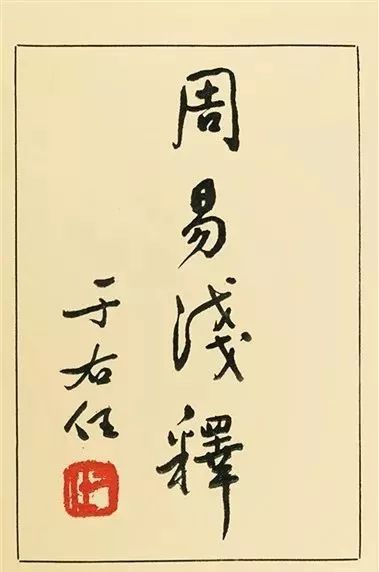 周易淺釋
于右任